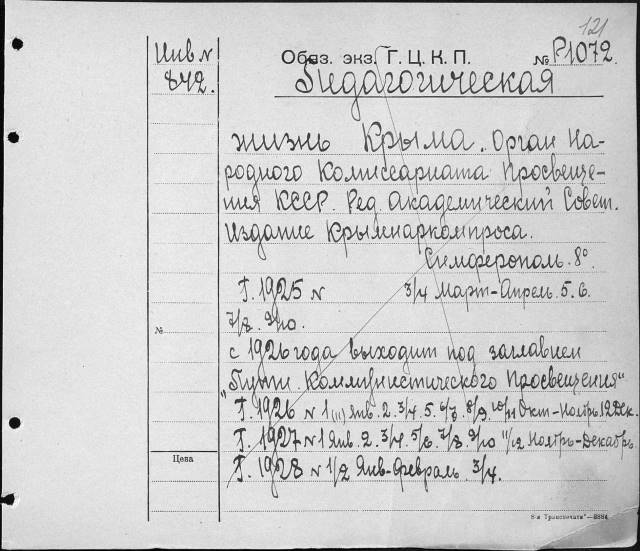 121
Инв №
842.
Обяз. экз. Г. Ц. К. П. № Р1072.
Педагогическая
жизнь Крыма. Орган На-
родного Комиссариата Просвеще-
ния КССР. Ред. Академический Совет.
Издание Крымнаркомпроса.
Симферополь. 8°.
Г. 1925 № 3/4 Март-Апрель. 5. 6.
7/8. 9/10.
№
с 1926 года выходит под заглавием
"Пути Коммунистического Просвещения"
Г. 1926 № 1 (11) Янв. 2. 3/4. 5. 6/7. 8/9. 10/11 Окт-Ноябрь 12 Дек.
Г. 1927 № 1 Янв. 2. 3/4. 5/6. 7/8. 9/10 11/12 Ноябрь-Декабрь.
Цена
Г. 1928 № 1/2 Янв-Февраль. 3/4.
8884